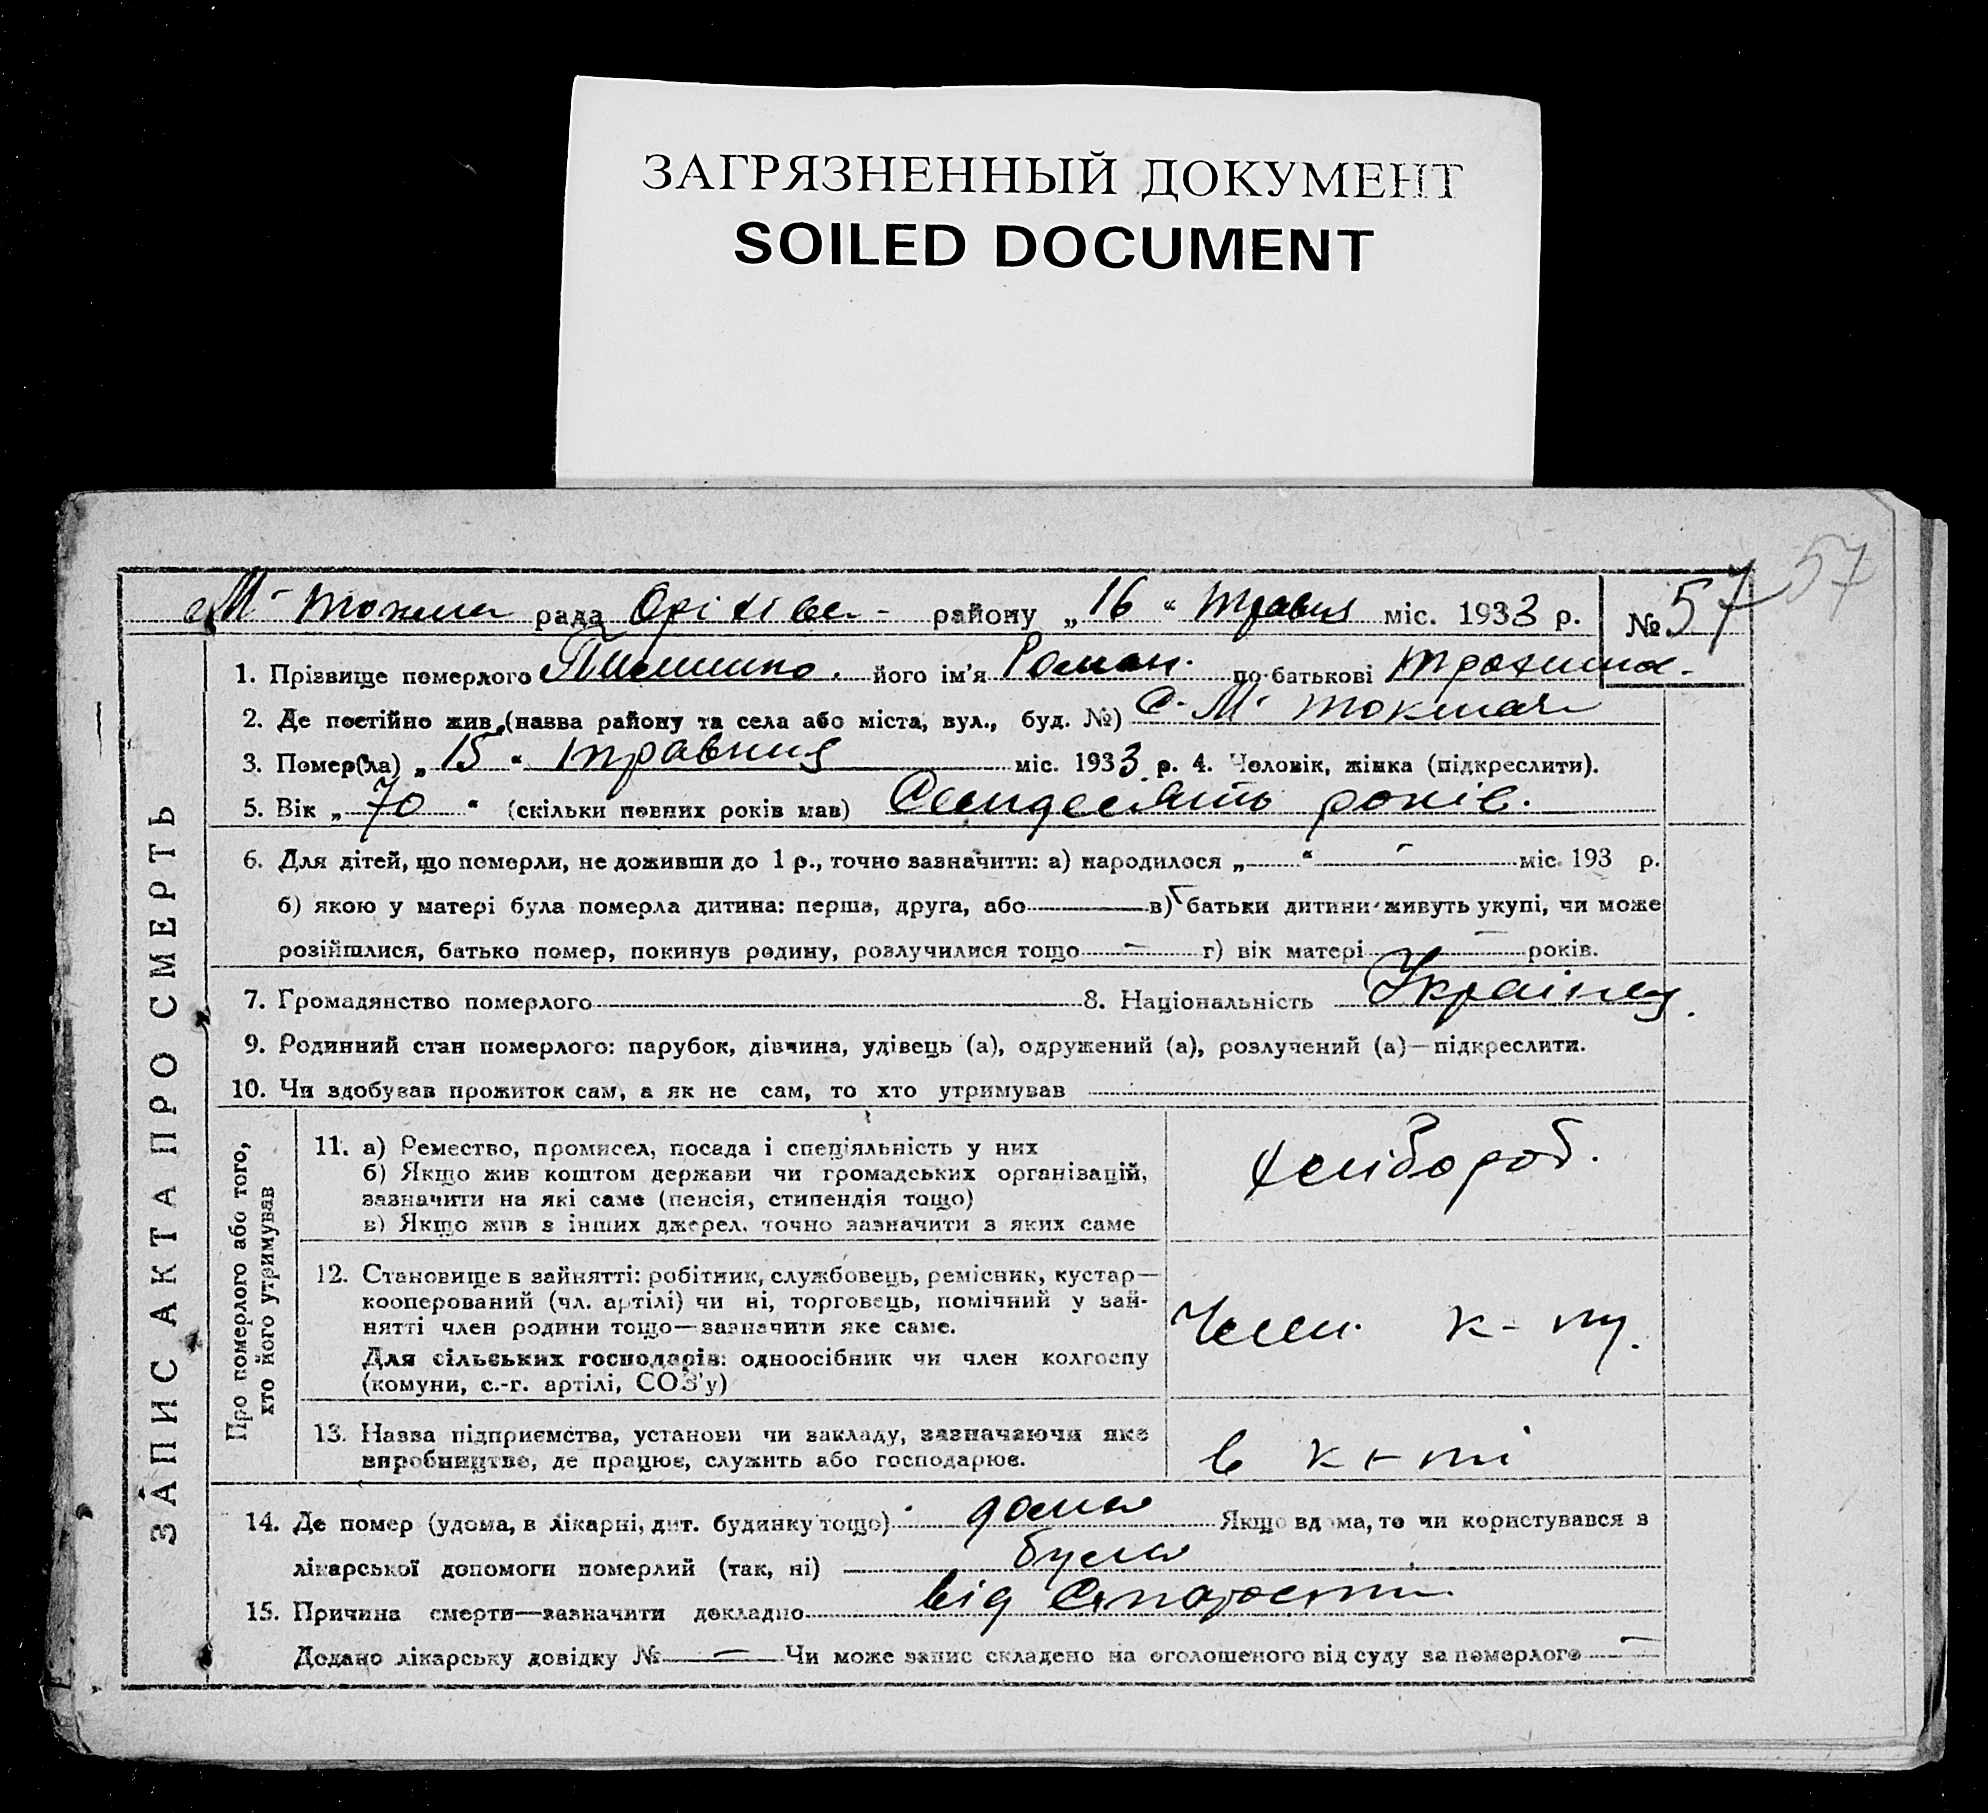 ЗАГРЯЗНЕННЫЙ ДОКУМЕНТ
SOILED DOCUMENT
57
М- Токма рада Оріхівс- району „16“ Травня міс. 1933 р. № 57
1. Прізвище померлого його ім'я Роман. по-батькові
2. Де постійно жив (назва району та села або міста, вул., буд. №) с. М- Токмач
3. Помер(ла) „15“ травня міс. 1933 р. 4. Чоловік, жінка (підкреслити).
5. Вік „70“ (скільки повних років мав) Семдесять років.
6. Для дітей, що померли, не доживши до 1 р., точно зазначити: а) народилося „ “ – міс. 193 р.
б) якою у матері була померла дитина: перша, друга, або в) батьки дитини живуть укупі, чи може
розійшлися, батько помер, покинув родину, розлучилися тощо – г) вік матері – років.
7. Громадянство померлого 8. Національність Українец.
9. Родинний стан померлого: парубок, дівчина, удівець (а), одружений (а), розлучений (а)—підкреслити.
10. Чи здобував прожиток сам, а як не сам, то хто утримував
ЗАПИС АКТА ПРО СМЕРТЬ
Про померлого або того,
хто його утримував
11. а) Ремество, промисел, посада і спеціяльність у них
б) Якщо жив коштом держави чи громадських організацій,
зазначити на які саме (пенсія, стипендія тощо)
в) Якщо жив з інших джерел, точно зазначити з яких саме
хлібороб.
12. Становище в зайнятті: робітник, службовець, ремісник, кустар—
кооперований (чл. артілі) чи ні, торговець, помічний у зай-
нятті член родини тощо—зазначити яке саме.
Для сільських господарів: одноосібник чи член колгоспу
(комуни, с.-г. артілі, СОЗ'у)
Член к-пу.
13. Назва підприємства, установи чи закладу, зазначаючи яке
виробництво, де працює, служить або господарює.
в к-пі
14. Де помер (удома, в лікарні, дит. будинку тощо) дома Якщо вдома, то чи користувався з
лікарської допомоги померлий (так, ні) була
15. Причина смерти—зазначити докладно від старости
Додано лікарську довідку № – Чи може запис складено на оголошеного від суду за померлого –